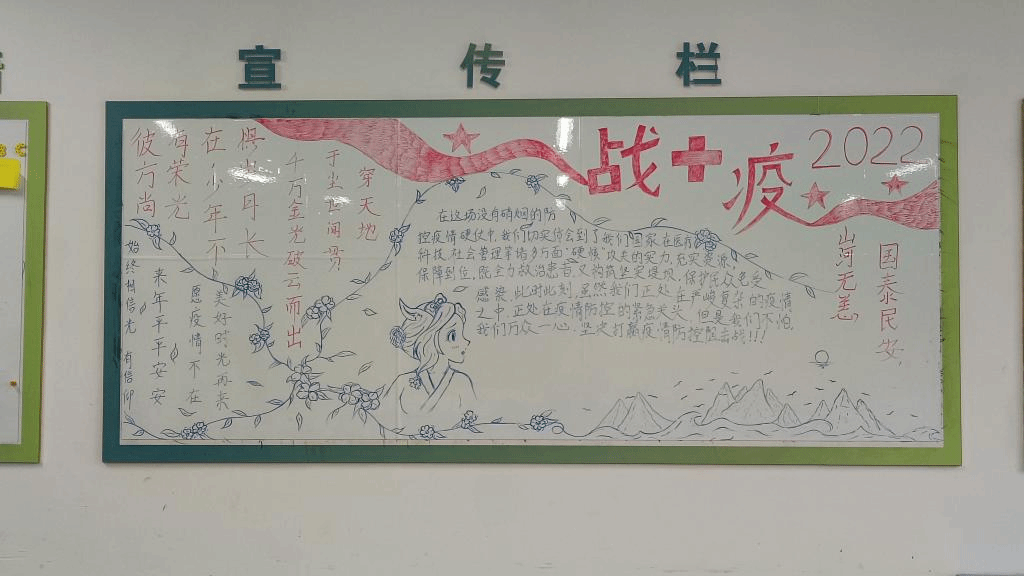 宣传栏
战+疫 2022
彼方尚
有荣光
在少年不
丹长
千万金光破云而出
于尘土间
穿天地
始终相信光 有信仰
来年平平安安
愿疫情不在
美好时光再来
在这场没有硝烟的防
控疫情硬仗中,我们切实体会到了我们国家在医疗
科技,社会管理等诸多方面"硬核"功夫的实力,充实资源
保障到位,既全力救治患者,又构筑坚实堤坝,保护民众免受
感染,此时此刻,虽然我们正处在严峻复杂的疫情
之中,正处在疫情防控的紧急关头,但是我们不怕,
我们万众一心,坚决打赢疫情防控阻击战!!!
山河无恙
国泰民安